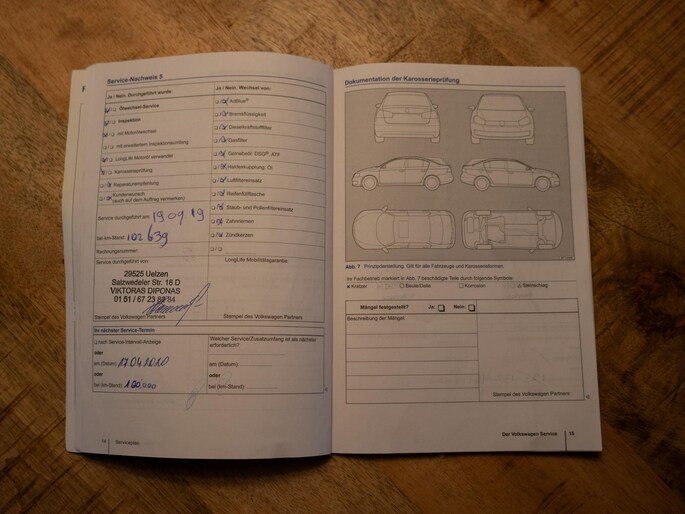 Service-Nachweis 5
Ja / Nein. Durchgeführt wurde:
Ölwechsel-Service
Inspektion
mit Motorölwechsel
mit erweitertem Inspektionsumfang
LongLife Motoröl verwendet
Karosserieprüfung
Reparaturempfehlung
Kundenwunsch
(auch auf dem Auftrag vermerken)
Service durchgeführt am: 19.09 19
bei km-Stand: 102 639
Rechnungsnummer:
Service durchgeführt von:
29525 Uelzen
Salzwedeler Str. 18 D
VIKTORAS DIPONAS
01 51 / 67 23 80 84
Stempel des Volkswagen Partners
Ja / Nein. Wechsel von:
AdBlue®
Bremsflüssigkeit
Dieselkraftstofffilter
Gasfilter
Getriebeöl: DSG®, ATF
Haldexkupplung: Öl
Luftfiltereinsatz
Reifenfüllflasche
Staub- und Pollenfiltereinsatz
Zahnriemen
Zündkerzen
LongLife Mobilitätsgarantie:
Stempel des Volkswagen Partners
Ihr nächster Service-Termin
nach Service-Intervall-Anzeige
oder
am (Datum) 17.04.2020
oder
bei (km-Stand)
Welcher Service/Zusatzumfang ist als nächster
erforderlich?
am (Datum)
oder
bei (km-Stand)
14 Serviceplan
Dokumentation der Karosserieprüfung
Abb. 7 Prinzipdarstellung. Gilt für alle Fahrzeuge und Karosserieformen.
Ihr Fachbetrieb markiert in Abb. 7 beschädigte Teile durch folgende Symbole:
Kratzer Beule/Delle Korrosion Steinschlag
Mängel festgestellt? Ja: Nein:
Beschreibung der Mängel:
Stempel des Volkswagen Partners
Der Volkswagen Service 15